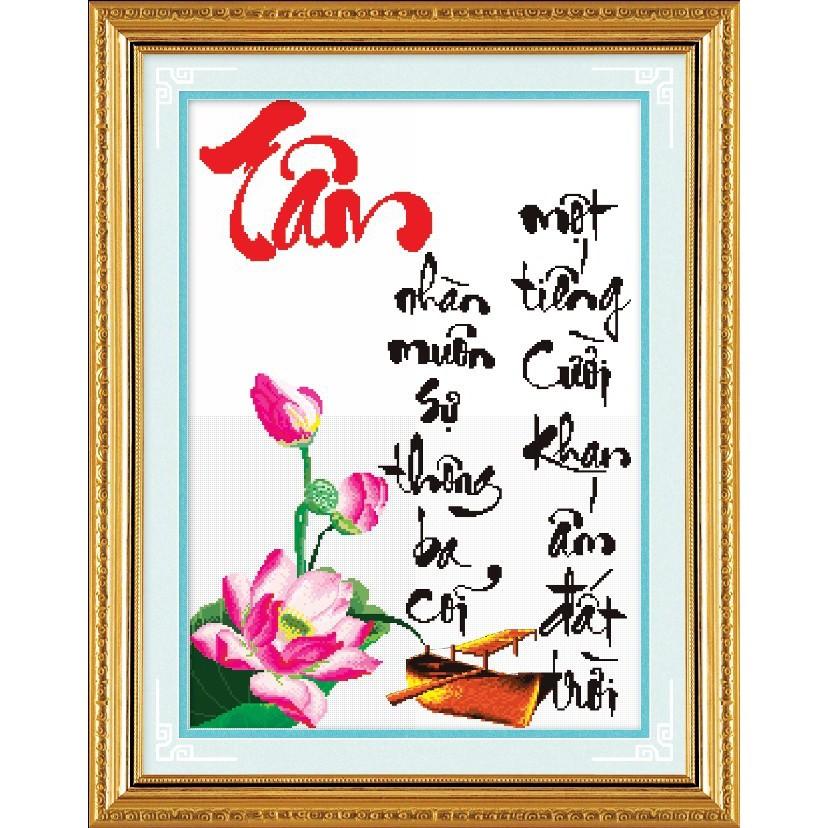 Tâm
nhàn
muôn
sự
thông
ba
cõi
một
tiếng
Cười
Khan
âm
đất
trời